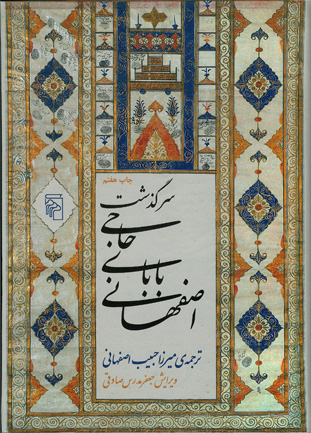 چاپ هفتم
سرگذشت
حاجی
بابای
اصفهانی
ترجمه‌ی میرزا حبیب اصفهانی
ویرایش جعفر مدرس صادقی